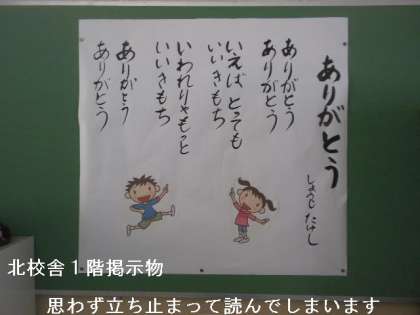 ありがとう
しょうじ たけし
ありがとう
ありがとう
いえば とっても
いいきもち
いわれりゃもっと
いいきもち
ありがとう
ありがとう
北校舎1階掲示物
思わず立ち止まって読んでしまいます